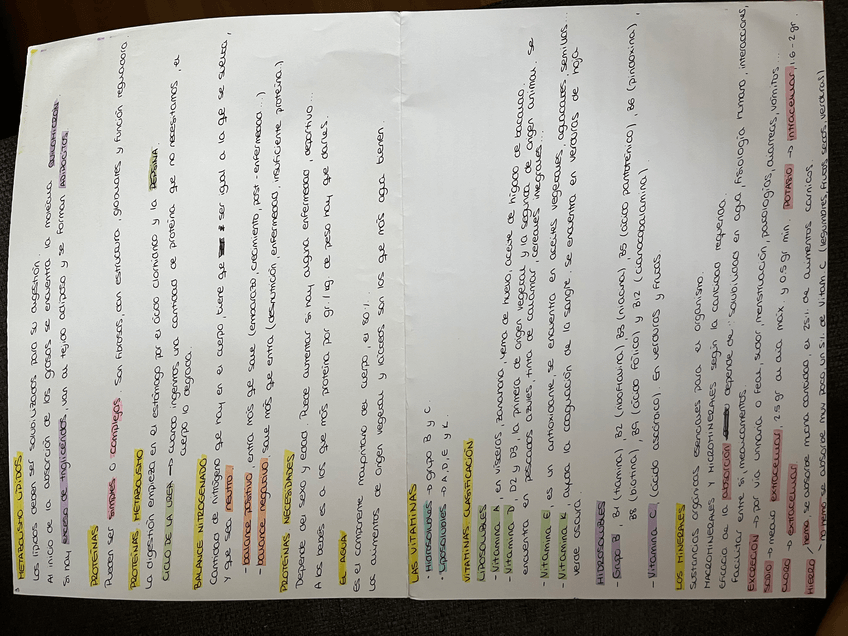 METABOLISMO LIPIDOS.
Los lípidos deben ser solubilizados para su digestión.
Al inicio de la absorción de las grasas se encuentra la molécula QUILOMICRÓN
Si hay exceso de triglicéridos, van al tejido adiposo y se forman ADIPOCITOS.
PROTEÍNAS
Pueden ser simples o complejas. Son fibrosas, dan estructura, globulares y función reguladora.
PROTEÍNAS METABOLISMO
La digestión empieza en el estómago por el ácido clorhídrico y la PEPSINA.
CICLO DE LA UREA → cuando ingerimos una cantidad de proteína que no necesitamos, el
cuerpo lo degrada.
BALANCE NITROGENADO
Cantidad de nitrógeno que hay en el cuerpo, tiene que ser igual a la que se suelta,
y que sea neutro.
- balance positivo, entra más que sale (embarazo, crecimiento, post-enfermedad...)
- balance negativo, sale más que entra (desnutrición, enfermedad, insuficiente proteína)
PROTEÍNAS NECESIDADES
Depende del sexo y edad. Puede aumentar si hay alguna enfermedad, deportivo...
A los bebés es a los que más proteína por gr/kg de peso hay que darles.
EL AGUA
Es el componente mayoritario del cuerpo, el 80%.
Los alimentos de origen vegetal y lácteos son los que más agua tienen.
LAS VITAMINAS
- Hidrosolubles → grupo B y C.
- Liposolubles → A, D, E y K.
VITAMINAS CLASIFICACIÓN
LIPOSOLUBLES
- Vitamina A, en vísceras, zanahoria, yema de huevo, aceite de hígado de bacalao.
- Vitamina D, D2 y D3, la primera de origen vegetal y la segunda de origen animal. Se
encuentra en pescados azules, tinta de calamar, cereales integrales...
- Vitamina E, es un antioxidante, se encuentra en aceites vegetales, aguacates, semillas...
- Vitamina K, ayuda la coagulación de la sangre. Se encuentra en verduras de hoja
verde oscura.
HIDROSOLUBLES
- Grupo B, B1 (tiamina), B2 (riboflavina), B3 (niacina), B5 (ácido pantoténico), B6 (piridoxina),
B8 (biotina), B9 (ácido fólico) y B12 (cianocobalamina).
- Vitamina C, (ácido ascórbico). En verduras y frutas.
LOS MINERALES
Sustancias orgánicas esenciales para el organismo.
MACROMINERALES Y MICROMINERALES según la cantidad requerida.
Eficacia de la absorción depende de: solubilidad en agua, fisiología humana, interacciones,
facilitar entre sí, medicamentos.
EXCRECIÓN → por vía urinaria o fecal, sudor, menstruación, patologías, diarreas, vómitos...
SODIO → medio extracelular. 2.5 gr al día máx. y 0.5 gr min. POTASIO → intracelular, 1.6 - 2 gr.
CLORO → extracelular.
HIERRO / hemo se absorbe mucha cantidad, el 25% de alimentos cárnicos.
no hemo se absorbe muy poco un 5% de vitam C (legumbres, frutos secos, verduras)